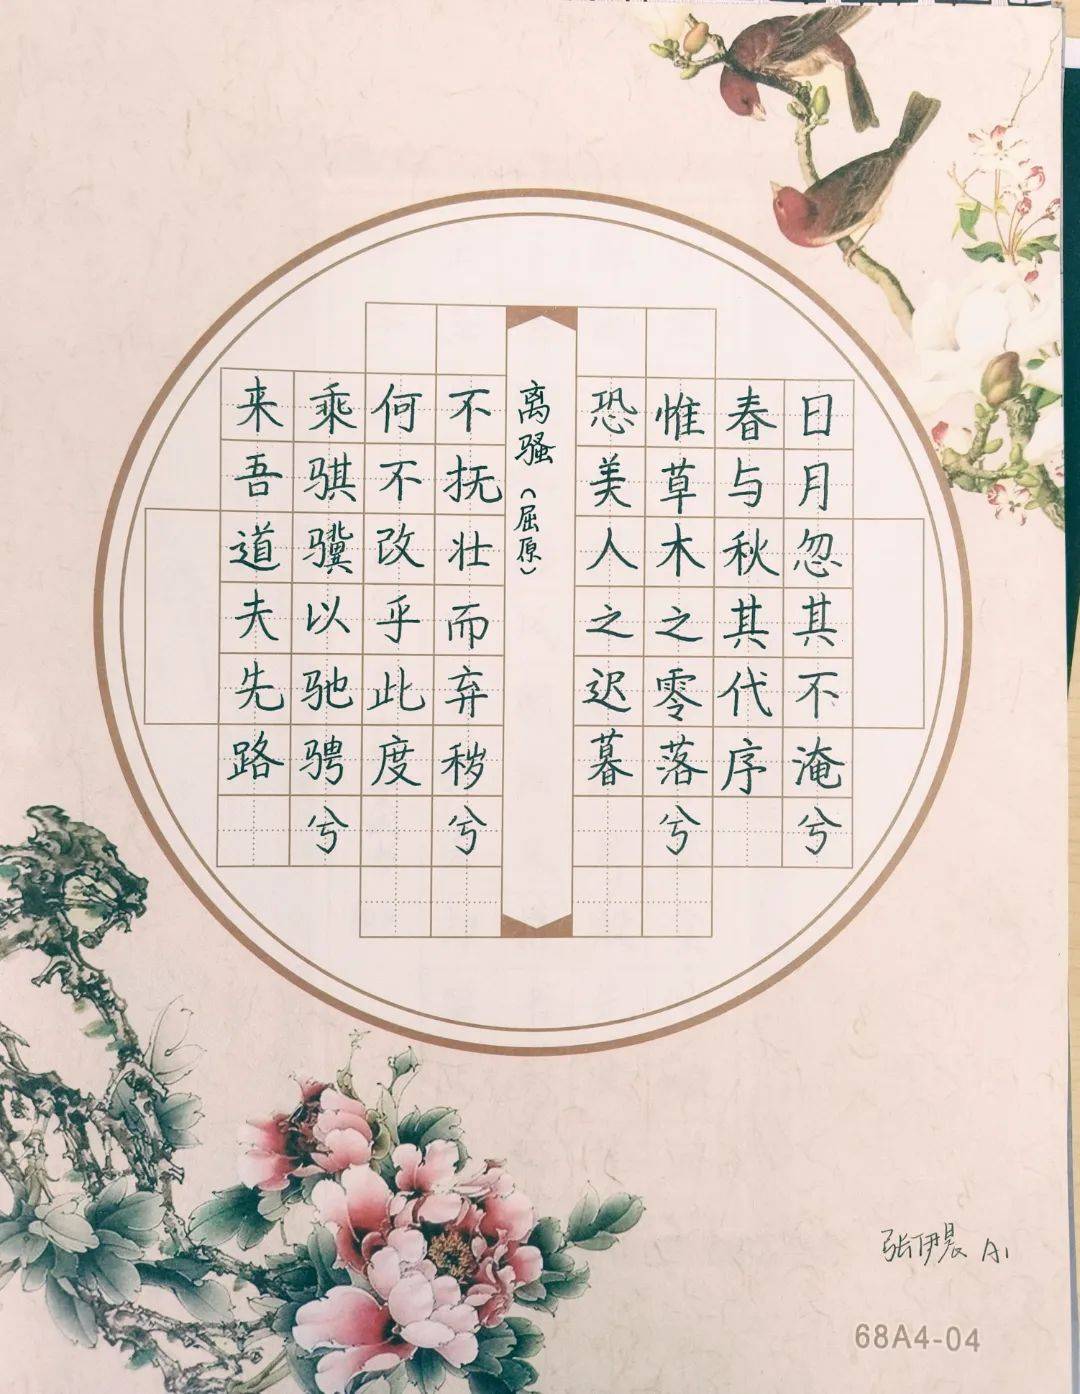 日月忽其不淹兮
春与秋其代序
惟草木之零落兮
恐美人之迟暮
离骚（屈原）
不抚壮而弃秽兮
何不改乎此度
乘骐骥以驰骋兮
来吾道夫先路
张伊晨 A1
68A4-04